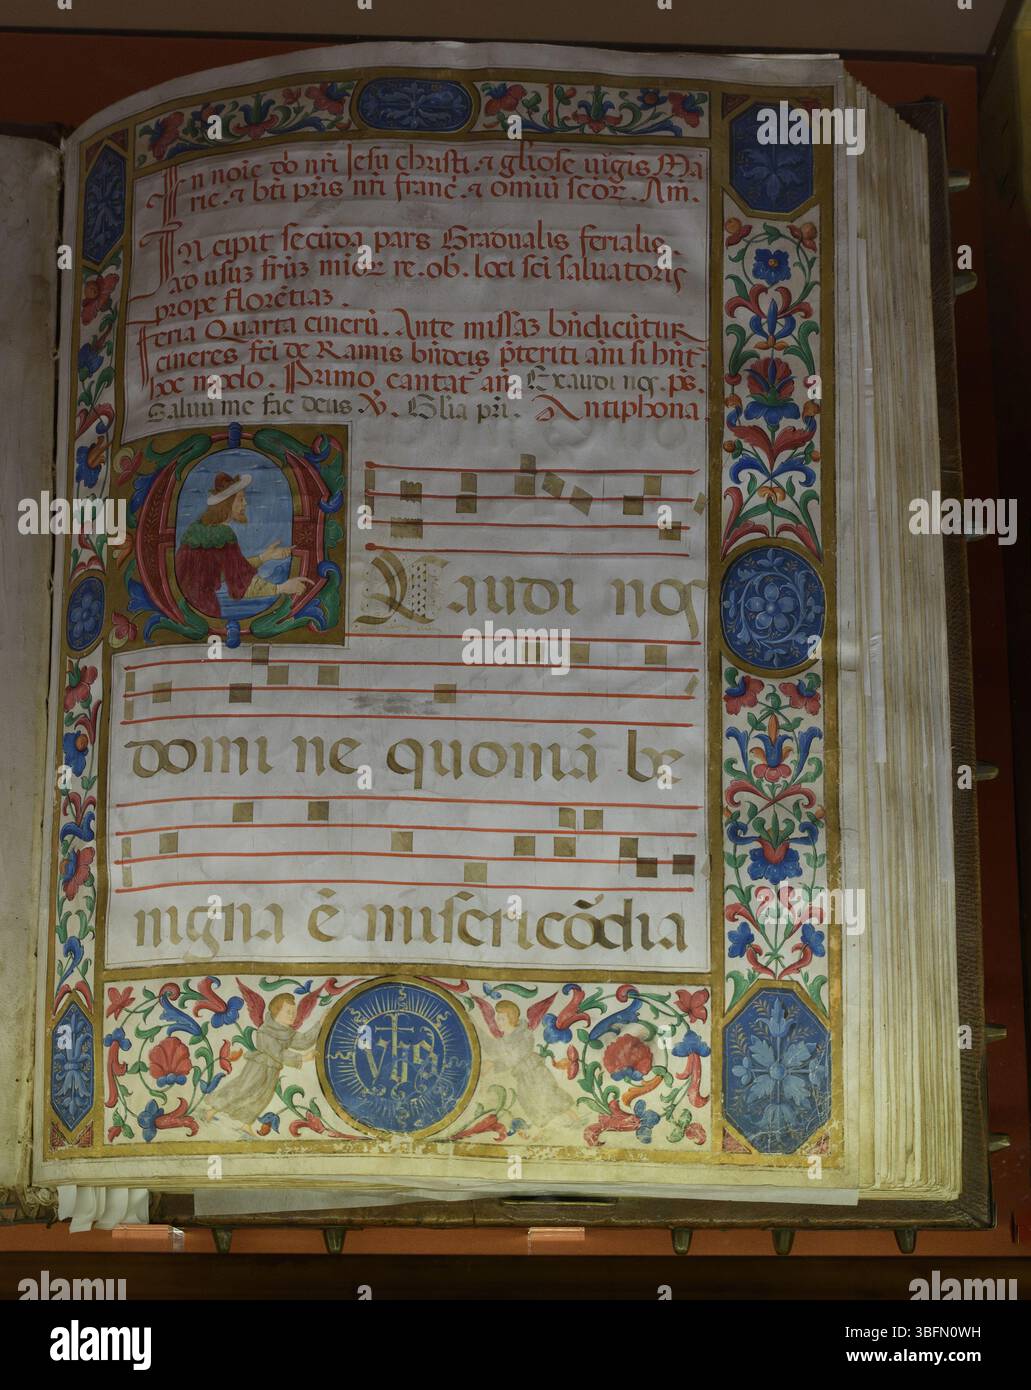 In noīe dn̄i nr̄i Jesu christi ⁊ gl̄iose uīgis Ma
rie. ⁊ bt̄i pr̄is nr̄i franc̄. ⁊ omiū scōr. Am̄.
Incipit secūda pars Gradualis ferialis.
ad usuʒ fr̄uʒ minor̄ re. ob. loci sc̄i saluatoris
prope florētiaʒ.
Feria Quarta cinerū. Ante missaʒ bn̄dicūtur
cineres fc̄i de Ramis bn̄dc̄is p̄teriti ān̄i si hn̄t
hoc modo. Primo cantat̄ an̄ Exaudi nos. ps.
Saluū me fac deus ℣. Gl̄ia pr̄i. Antiphona
Exaudi nos
domine quoniā be
nigna ē misericōdia
YHS
alamy
Image ID: 3BFN0WH
www.alamy.com